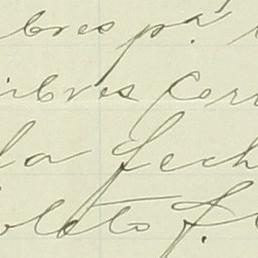 bres pa.
ibres cor
la fech
oleto f.